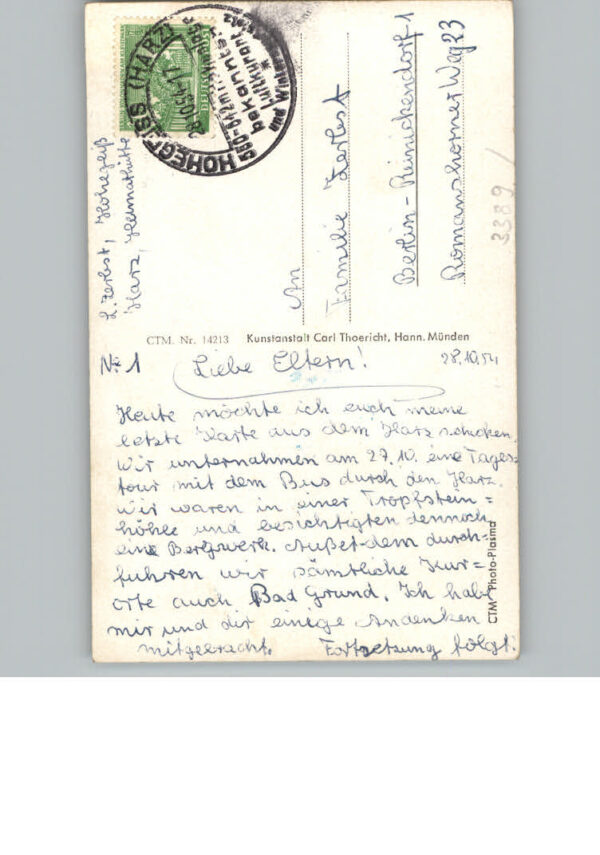 HOHEGEISS (HARZ)
28.10.54.-17
560-642 m
bekannter
Luftkurort
und Wintersportplatz
DEUTSCHE
L. Zerbst, Hohegeiß
Harz, Heimathütte
An
Familie Zerbst
Berlin - Reinickendorf 1
Romanshorner Weg 23
3389 /
CTM. Nr. 14213 Kunstanstalt Carl Thoericht, Hann. Münden
CTM Photo-Plasma
Nr 1 Liebe Eltern! 28.10.54
Heute möchte ich euch meine
letzte Karte aus dem Harz schicken.
Wir unternahmen am 27.10. eine Tages-
tour mit dem Bus durch den Harz.
Wir waren in einer Tropfstein=
höhle und besichtigten dennoch
eine Bergwerk. Außer-dem durch-
fuhren wir sämtliche Kur=
orte auch Bad Grund. Ich habe
mir und dir einige Andenken
mitgebracht. Fortsetzung folgt.